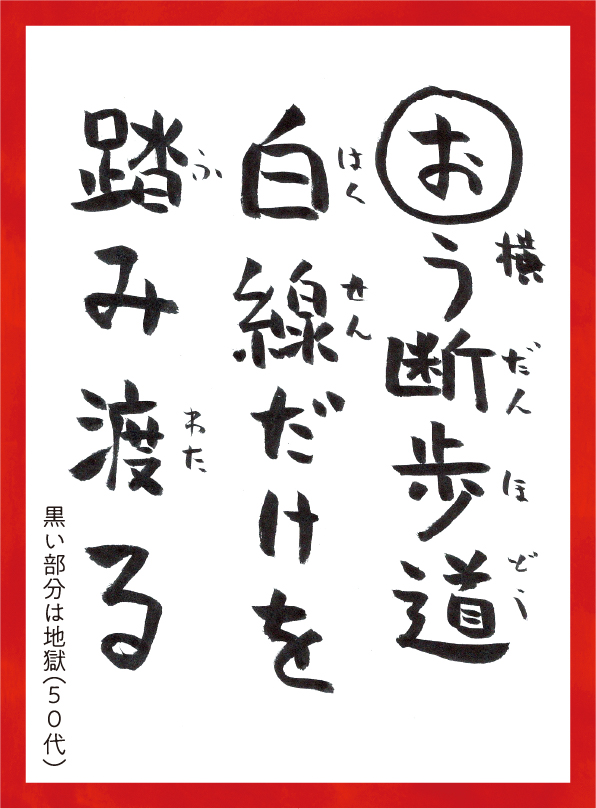 おう断歩道
横 だん ほ どう
白線だけを
はく せん
踏み渡る
ふ わた
黒い部分は地獄(50代)